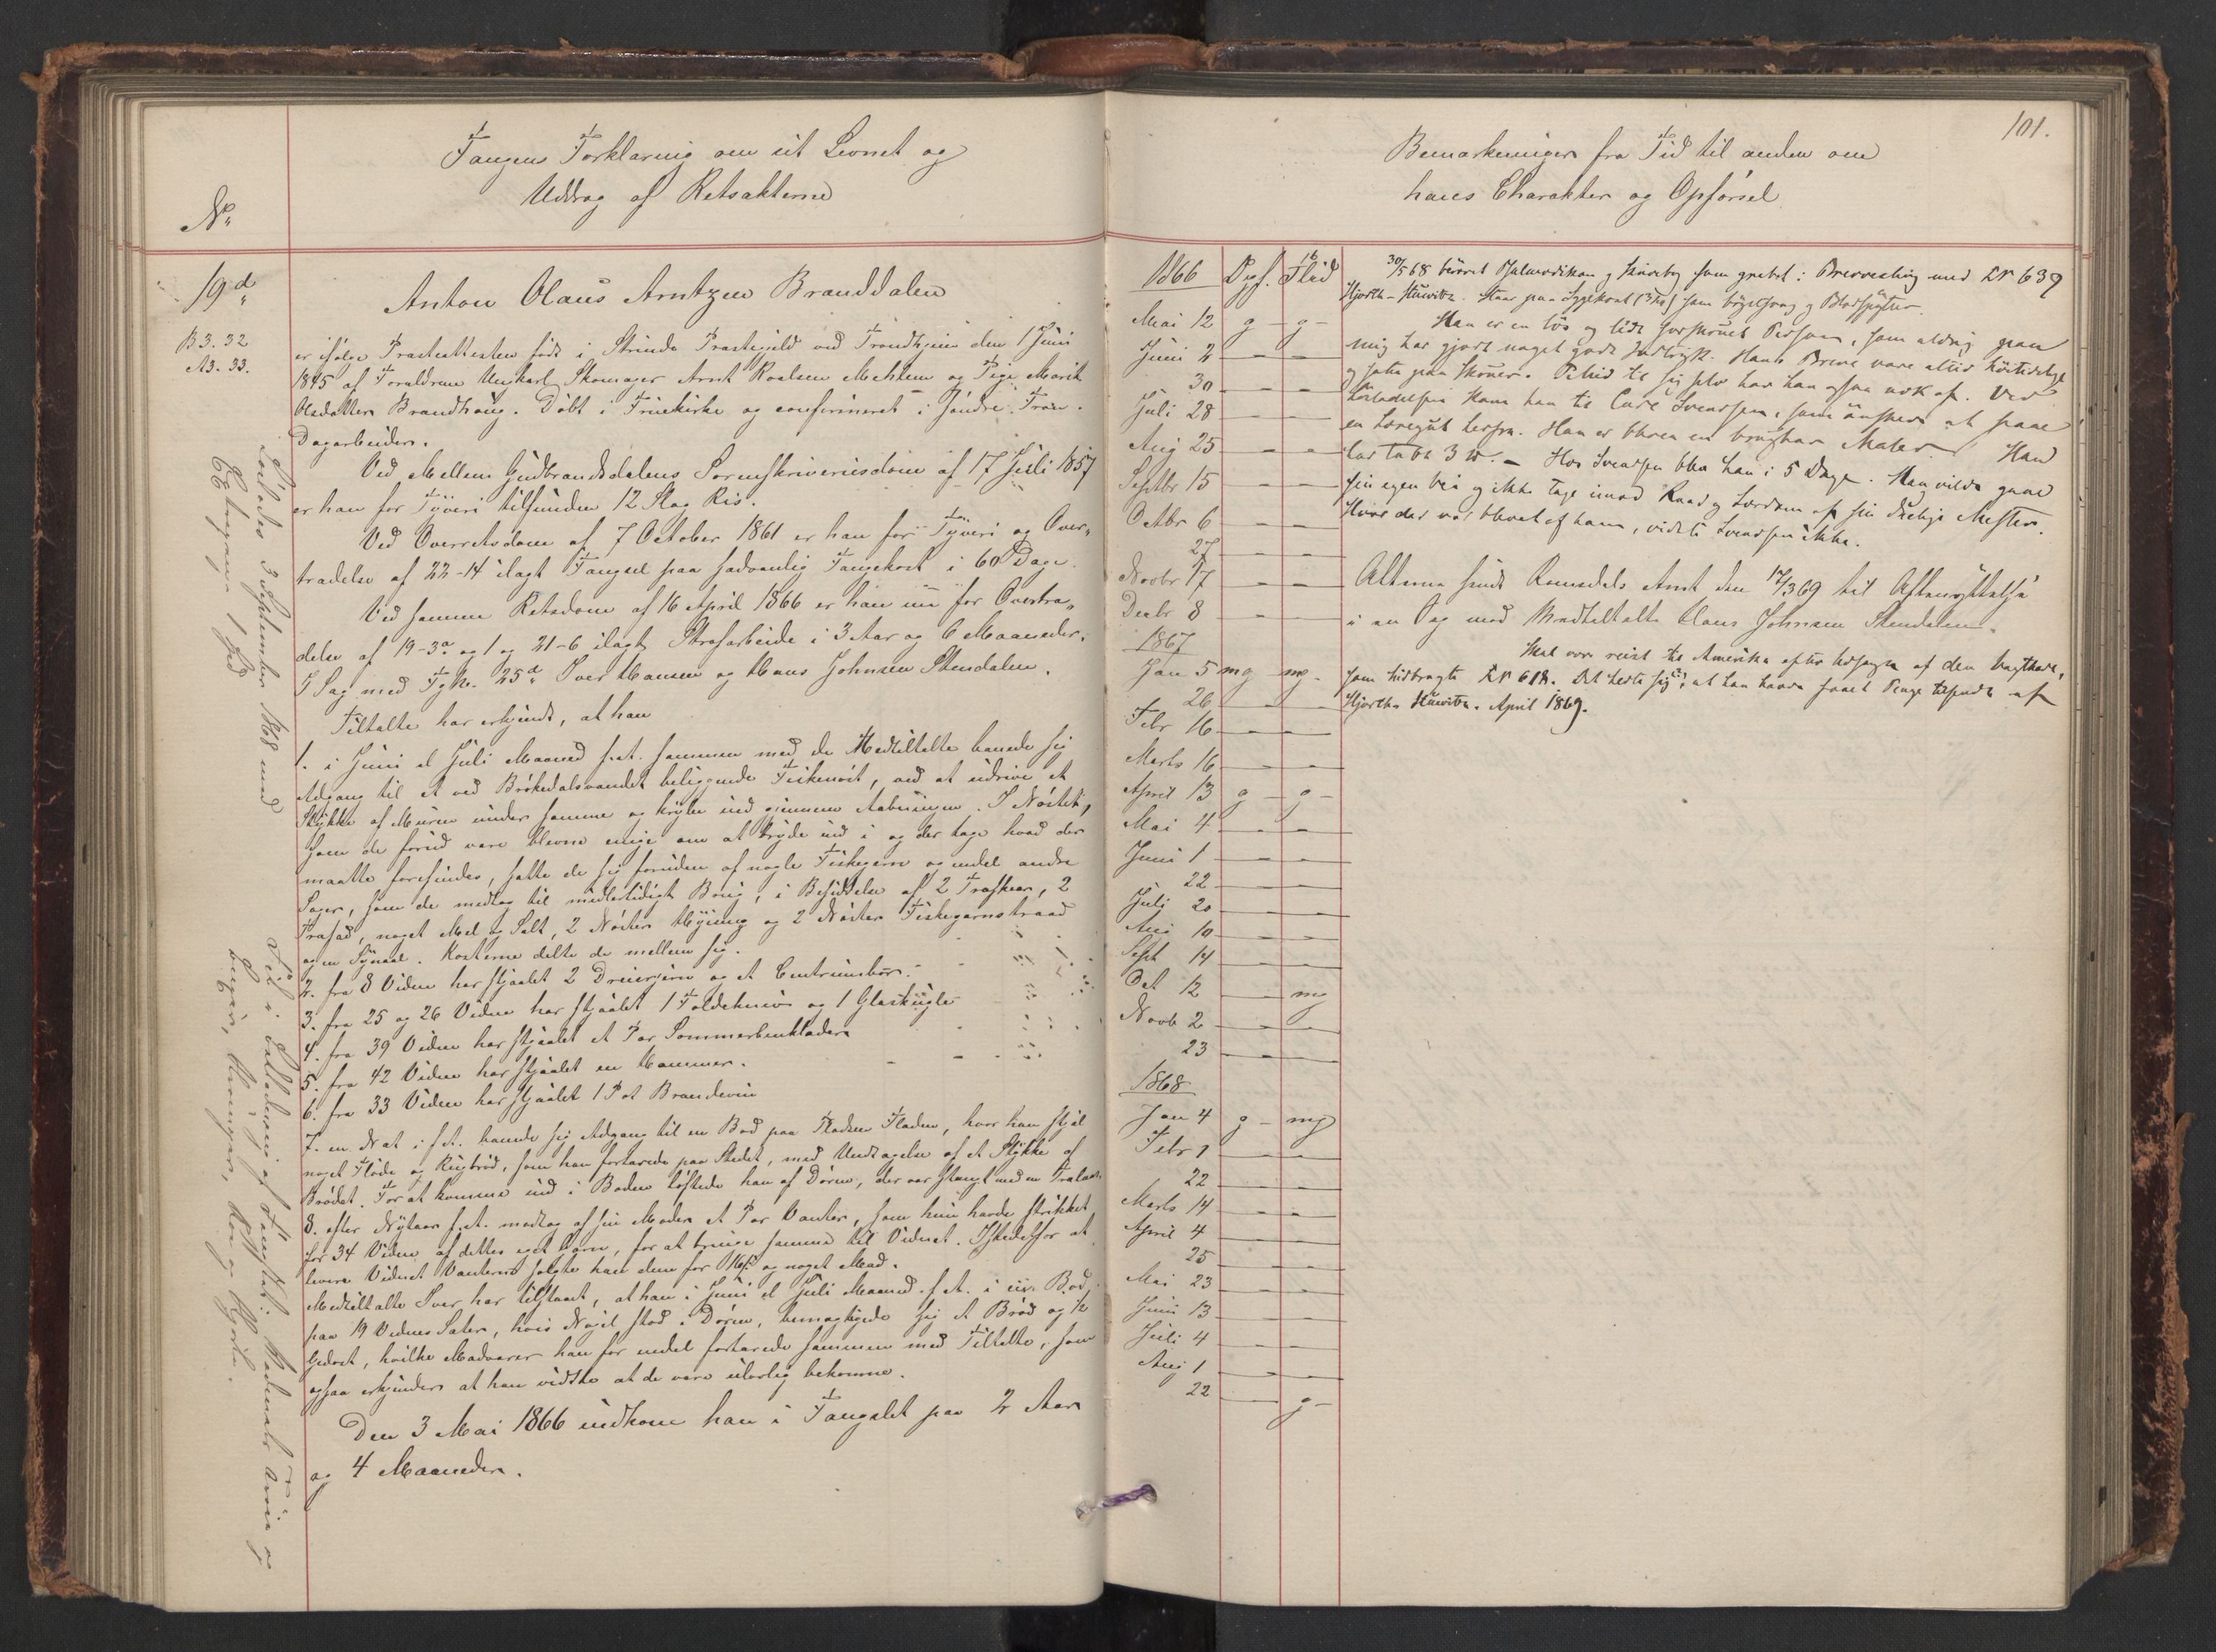 Fangens Forklaring om sit Levnet og
Uddrag af Retsakterne
No
19d
B3. 32
A3. 33.
Anton Olaus Arntzen Branddalen
er ifølge Præsteattesten født i Strinde Præstegjeld ved Trondhjem den 1 Juni
1845 af Forældrene Ungkarl Skomager Arnt Roalsen Mehlem og Pige Marit
Olsdatter Brandhaug. Døbt i Fruekirke og confirmeret i Søndre Fron.
Dagarbeider.
Ved Mellem Gudbrandsdalens Sorenskriveriesdom af 17 Juli 1857
er han for Tyveri tilfunden 12 Slag Ris.
Ved Overretsdom af 7 October 1861 er han for Tyveri og Over-
trædelse af 22-14 ilagt Fængsel paa sædvanlig Fangekost i 60 Dage.
Ved samme Retsdom af 16 April 1866 er han nu for Overtræ-
delse af 19-3a og 1 og 21-6 ilagt Strafarbeide i 3 Aar og 6 Maaneder.
I Sag med Fg No. 25d Iver Hansen og Hans Johnsen Stendalen.
Tiltalte har erkjendt, at han
1. i Juni el Juli Maaned f.A. sammen med de Medtiltalte banede sig
Adgang til et ved Brøkedalsvandet beliggende Fiskenøst, ved at udrive et
Stykke af Muren under samme og krybe ind gjennem Aabningen. I Nøstet,
som de forud vare blevne enige om at bryde ind i og der tage hvad der
maatte forefindes, satte de sig foruden af nogle Fiskegarn og endel andre
Sager, som de medtog til midlertidigt Brug, i Besiddelse af 2 Træskeer, 2
Træfad, noget Mel og Salt, 2 Nøster Hyssing og 2 Nøster Fiskegarnstraad
og en Synaal. Kosterne delte de mellem sig.
2. fra 8 Vidne har stjaalet 2 Dreierjern og et Centrumsbor.
3. fra 25 og 26 Vidne har stjaalet 1 Foldekniv og 1 Glaskugle
4. fra 39 Vidne har stjaalet et Par Sommerbenklæder
5. fra 42 Vidne har stjaalet en Hammer.
6. fra 33 Vidne har stjaalet 1 Pot Brændevin
7. en Nat i f.A. banede sig Adgang til en Bod paa Pladsen Fladen, hvor han stjal
noget Fløde og Rugbrød, som han fortærede paa Stedet, med Undtagelse af et Stykke af
Brødet. For at komme ind i Boden løftede han af Døren, der var stængt med en Trælaas.
8. efter Nytaar f.A. modtog af sin Moder et Par Vanter, som hun havde strikket
for 34 Vidne af dettes eget Garn, for at bringe samme til Vidnet. Istedetfor at
levere Vidnet Vanterne solgte han dem for 16 s og noget Mad.
Medtiltalte Iver har tilstaaet, at han i Juni el Juli Maaned f.A. i en Bod
paa 19 Vidnes Sæter, hvis Nøgel stod i Døren, bemægtigede sig et Brød og 1/2
Gedost, hvilke Madvarer han for endel fortærede sammen med Tiltalte, som
ogsaa erkjender at han vidste at de vare ulovlig bekomne.
Den 3 Mai 1866 indkom han i Fængslet paa 2 Aar
og 4 Maaneder.
Løslades 3 September 1868 med
Extragang 1
101.
Bemærkninger fra Tid til anden om
hans Charakter og Opførsel.
1866 Opf. Flid
Mai 12 g - g -
Juni 2
30
Juli 28
Aug 25
Septbr 15
Octbr 6
27
Novbr 17
Decbr 8
1867
Jan 5 mg mg.
26
Febr 16
Marts 16
April 13 g - g -
Mai 4
Juni 1
22
Juli 20
Aug 10
Sept 14
Oct 12 mg
Novb 2
23
1868
Jan 4 g - mg
Febr 1
22
Marts 14
April 4
25
Mai 23
Juni 13
Juli 4
Aug 1
22 g -
30/5 68 Brevvexling med No 639
Han er en løs og Person, som aldrig paa
mig har gjort noget godt Indtryk. Hans Breve vare altid
Han
har tabt 3 W. - Hos Svendsen blev han i 5 Dage. Han vilde gaae
sin egen Vei og ikke tage imod Raad og Lærdom af sin duelige Mester.
Hvor der var blevet af ham, vidste Svendsen ikke.
Akterne sendt Romsdals Amt den 17/3 69 til Afbenyttelse
i en Sag mod Medtiltalte Hans Johnsen Stendalen.
Skal være reist til Amerika efter
April 1869.